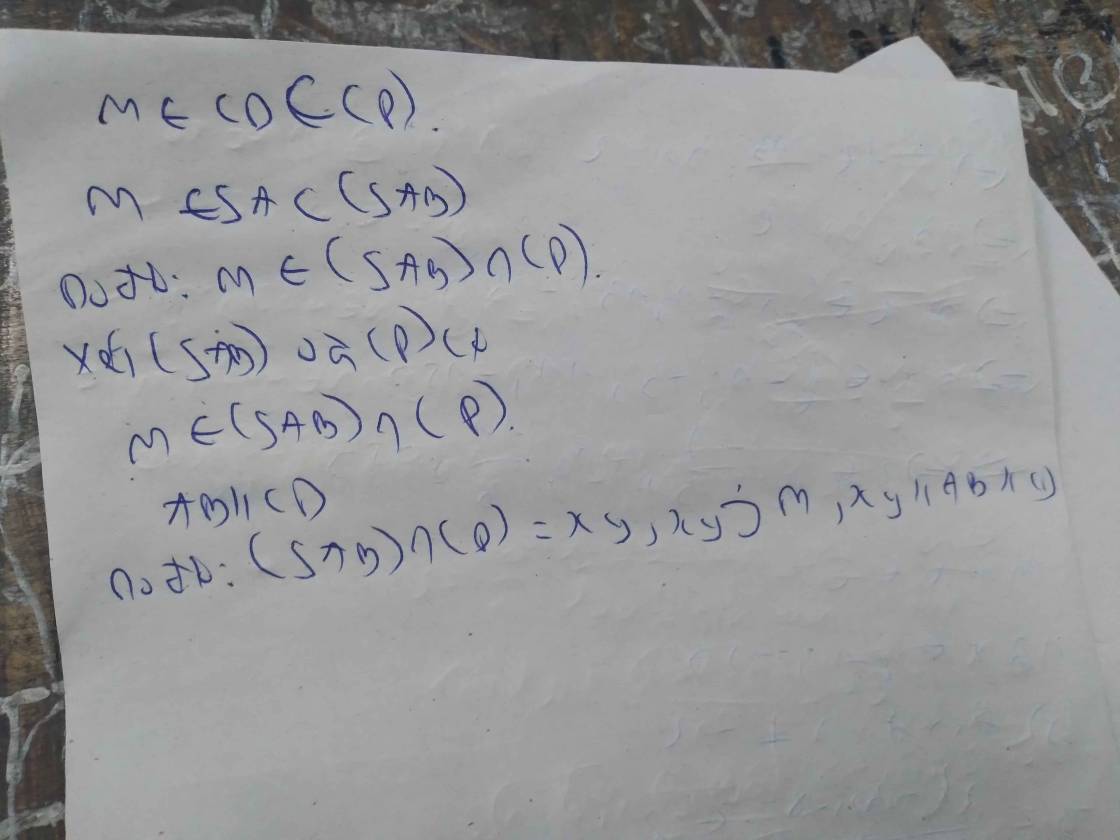 M ∈ CD ⊂ (P).
M ∈ SA ⊂ (SAB)
M ∈ (SAB) ∩ (P).
Xét (SAB) và (P) có
M ∈ (SAB) ∩ (P).
AB // CD
(SAB) ∩ (P) = xy, xy ⊃ M, xy // AB // CD